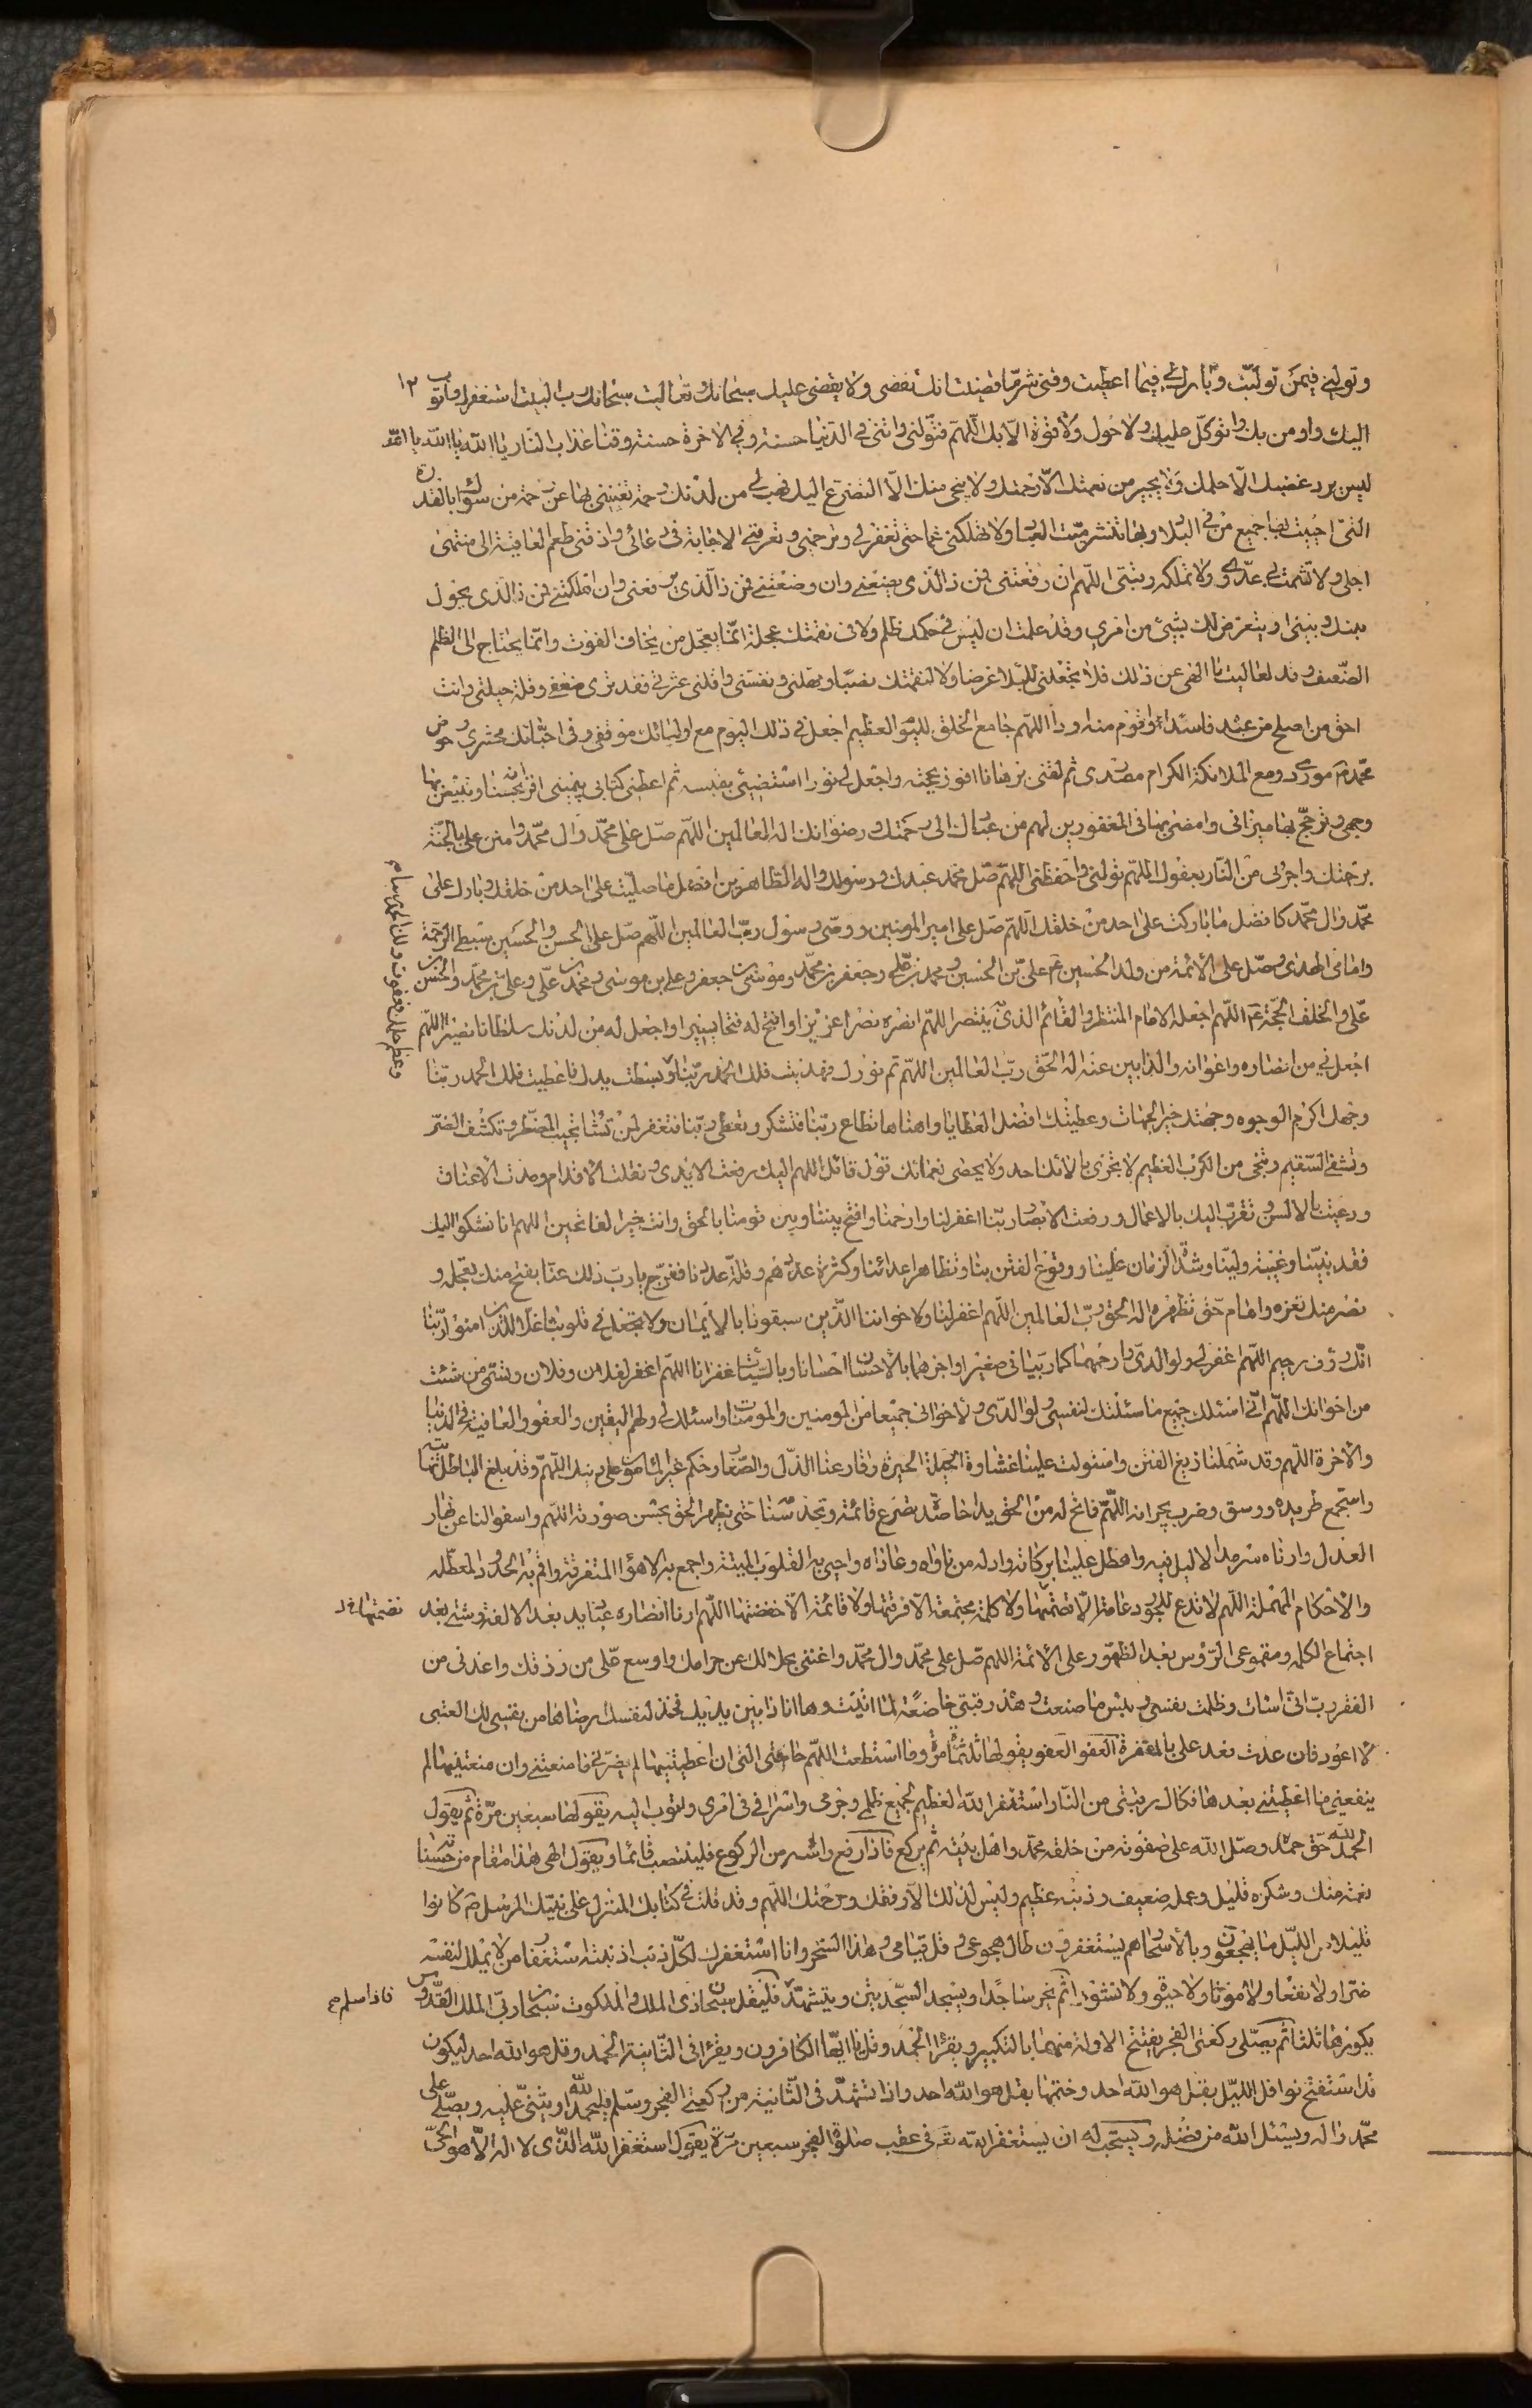 وتولني فيمن توليت وبارك لي فيما اعطيت وقني شر ما قضيت انك تقضي ولا يقضى عليك سبحانك وتعاليت سبحانك رب البيت استغفرك واتوب ١٢
اليك واومن بك واتوكل عليك ولا حول ولا قوة الا بك اللهم فتولني واتني في الدنيا حسنة وفي الاخرة حسنة وقنا عذاب النار يا الله يا الله يا الله
ليس يرد غضبك الا حلمك ولا يجير من نعمتك الا رحمتك ولا ينجي منك الا التضرع اليك فهب لي من لدنك رحمة تغنيني بها عن رحمة من سواك بالقدرة
التي احييت بها جميع من في البلاد وبها تنشر ميت العباد ولا تهلكني غما حتى تغفر لي وترحمني وتعرفني الاجابة في دعائي واذقني طعم العافية الى منتهى
اجلي ولا تشمت بي عدوي ولا تملكه رقبتي اللهم ان رفعتني فمن ذا الذي يضعني وان وضعتني فمن ذا الذي يرفعني وان اهلكتني فمن ذا الذي يحول
بينك وبيني او يتعرض لك بشيء من امري وقد علمت ان ليس في حكمك ظلم ولا في نقمتك عجلة انما يعجل من يخاف الفوت وانما يحتاج الى الظلم
الضعيف وقد تعاليت يا الهي عن ذلك فلا تجعلني للبلاء غرضا ولا لنقمتك نصبا ومهلني ونفسني واقلني عثرتي فقد ترى ضعفي وقلة حيلتي وانت
احق من اصلح من عبد فاسدا او اقوم منه اودا اللهم جامع الخلق لليوم العظيم اجعل في ذلك اليوم مع اوليائك موقفي وفي احبائك محشري وحوض
محمد ص موردي ومع الملائكة الكرام مصدري ثم لقني برهانا افوز بحجته واجعل لي نورا استضيئ بقبسه ثم اعطني كتابي بيميني اقرء بحسناته وتبيض بها
وجهي وترجح بها ميزاني وامضي بها في المغفورين لهم من عبادك الى رحمتك ورضوانك اله العالمين اللهم صل على محمد وال محمد وامنن علي بالجنة
برحمتك واجرني من النار بعفوك اللهم تولني واحفظني اللهم صل محمد عبدك ورسولك واله الطاهرين افضل ما صليت على احد من خلقك وبارك على
محمد وال محمد كافضل ما باركت على احد من خلقك اللهم صل على امير المومنين ووصي رسول رب العالمين اللهم صل على الحسن والحسين سبطي الرحمة
وامامي الهدى وصل على الائمة من ولد الحسين ع علي بن الحسين ومحمد بن علي وجعفر بن محمد وموسى بن جعفر وعلي بن موسى ومحمد بن علي وعلي بن محمد والحسن بن
علي والخلف الحجة ع اللهم اجعله الامام المنتظر والقائم الذي به ينتصر اللهم انصره نصرا عزيزا وافتح له فتحا يسيرا واجعل له من لدنك سلطانا نصيرا اللهم
اجعلني من انصاره واعوانه والذابين عنه اله الحق رب العالمين اللهم تم نورك فهديت فلك الحمد ربنا وبسطت يدك فاعطيت فلك الحمد ربنا
وجهك اكرم الوجوه وجهتك خير الجهات وعطيتك افضل العطايا واهناها تطاع ربنا فتشكر وتعصى ربنا فتغفر لمن تشاء تجيب المضطر وتكشف الضر
وتشفي السقيم وتنجي من الكرب العظيم لا يجزي بالائك احد ولا يحصي نعمائك قول قائل اللهم اليك رفعت الايدي ونقلت الاقدام ومدت الاعناق
ودعيت بالالسن وتقرب اليك بالاعمال ورفعت الابصار ربنا اغفر لنا وارحمنا وافتح بيننا وبين قومنا بالحق وانت خير الفاتحين اللهم انا نشكو اليك
فقد نبينا وغيبة ولينا وشدة الزمان علينا ووقوع الفتن بنا وتظاهر اعدائنا وكثرة عددهم وقلة عددنا ففرج يا رب ذلك عنا بفتح منك تعجله و
نصر منك تعزه وامام حق تظهره اله الحق رب العالمين اللهم اغفر لنا ولاخواننا الذين سبقونا بالايمان ولا تجعل في قلوبنا غلا للذين امنوا ربنا
انك رؤف رحيم اللهم اغفر لي ولوالدي وارحمهما كما ربياني صغيرا واجزهما بالاحسان احسانا وبالسيئات غفرانا اللهم اغفر لفلان وفلان وتسمى من شئت
من اخوانك اللهم اني اسئلك جميع ما سئلتك لنفسي ولوالدي ولاخواني جميعا من المومنين والمومنات واسئلك لي ولهم اليقين والعفو والعافية في الدنيا
والاخرة اللهم وقد شملنا زيغ الفتن واستولت علينا غشاوة الحيرة وقارعنا الذل والصغار وحكم غير المامون على دينك اللهم وقد بلغ الباطل نهايته
واستجمع طريده ووسق وضرب بجرانه اللهم فاتح له من الحق يدا حاصدة تصرع قائمه وتجذ سنامه حتى يظهر الحق بحسن صورته اللهم واسفر لنا عن نهار
العدل وارناه سرمدا لا ليل فيه واهطل علينا بركاته وادله من ناواه وعاداه واحيي به القلوب الميتة واجمع به الاهواء المتفرقة واقم به الحدود المعطلة
والاحكام المهملة اللهم لا تدع للجور دعامة الا قصمتها ولا كلمة مجتمعة الا فرقتها ولا قائمة الا خفضتها اللهم ارنا انصاره عباديد بعد الالفة وشتى بعد
اجتماع الكلمة ومقموعي الرؤس بعد الظهور على الائمة اللهم صل على محمد وال محمد واغنني بحلالك عن حرامك واوسع علي من رزقك واعذني من
الفقر رب اني اسات وظلمت نفسي وبئس ما صنعت وهذه رقبتي خاضعة لما اتيت وها انا ذا بين يديك فخذ لنفسك رضاها من نفسي لك العتبى
لا اعود فان عدت فعد علي بالمغفرة العفو العفو يقولها ثلثمائة مرة وما استطعت اللهم حاجتي التي ان اعطيتنيها لم يضرني ما منعتني وان منعتنيها لم
ينفعني ما اعطيتني بعدها فكاك رقبتي من النار استغفر الله العظيم لجميع ظلمي وجرمي واسرافي في امري واتوب اليه يقولها سبعين مرة ثم يقول
الحمد لله حق حمده وصلى الله على صفوته من خلقه محمد واهل بيته ثم يركع فاذا رفع راسه من الركوع فلينتصب قائما ويقول الهي هذا مقام من حسناته
نعمة منك وشكره قليل وعمله ضعيف وذنبه عظيم وليس لذلك الا رفقك ورحمتك اللهم وقد قلت في كتابك المنزل على نبيك المرسل ص كانوا
قليلا من الليل ما يهجعون وبالاسحار هم يستغفرون طال هجوعي وقل قيامي وهذا السحر وانا استغفرك لكل ذنب اذنبته استغفار من لا يملك لنفسه
ضرا ولا نفعا ولا موتا ولا حيوة ولا نشورا ثم يخر ساجدا ويسجد السجدتين ويتشهد فليقل سبحان ذي الملك والملكوت سبحان ربي الملك القدوس
يكررها ثلثا ثم يصلي ركعتي الفجر يفتتح الاولة منهما بالتكبير ويقرأ الحمد وقل يا ايها الكافرون ويقرأ في الثانية الحمد وقل هو الله احد ليكون
قد استفتح نوافل الليل بقل هو الله احد وختمها بقل هو الله احد واذا تشهد في الثانية من ركعتي الفجر وسلم فليحمد الله ويثني عليه ويصلي على
محمد واله ويسئل الله من فضله ويستحب له ان يستغفر الله تع في عقب صلوة الفجر سبعين مرة يقول استغفر الله الذي لا اله الا هو الحي
وعظم حلمك فعفوت ولك الحمد
قصمتها خ ل
فاذا سلم صح